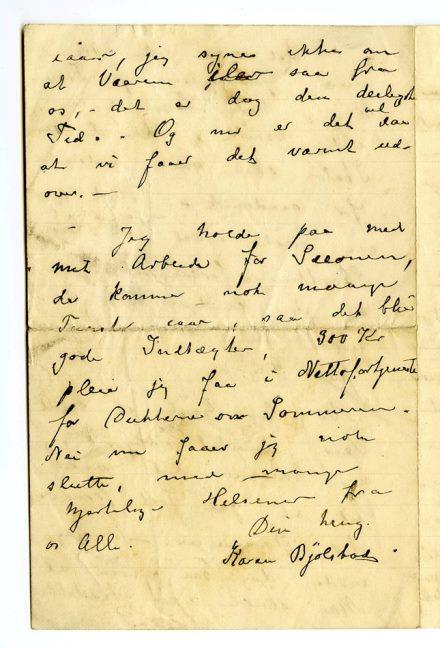 iaar, jeg synes ikke om
at Vaaren flyr saa fra
os, - det er dog den deiligste
Tid. - Og nu er det vel saa
at vi faaer det varmt ud-
over. -
- Jeg holder paa med
mit Arbeide for Saisonen,
der kommer nok mange
Turister iaar, saa det blir
gode Indtægter, 300 Kr
pleier jeg faa i Nettofortjeneste
for Dukkerne om Sommeren.
Nei nu faaer jeg nok
slutte, med mange
hjertelige Hilsener fra
os Alle.
Din heng.
Karen Bjölstad.